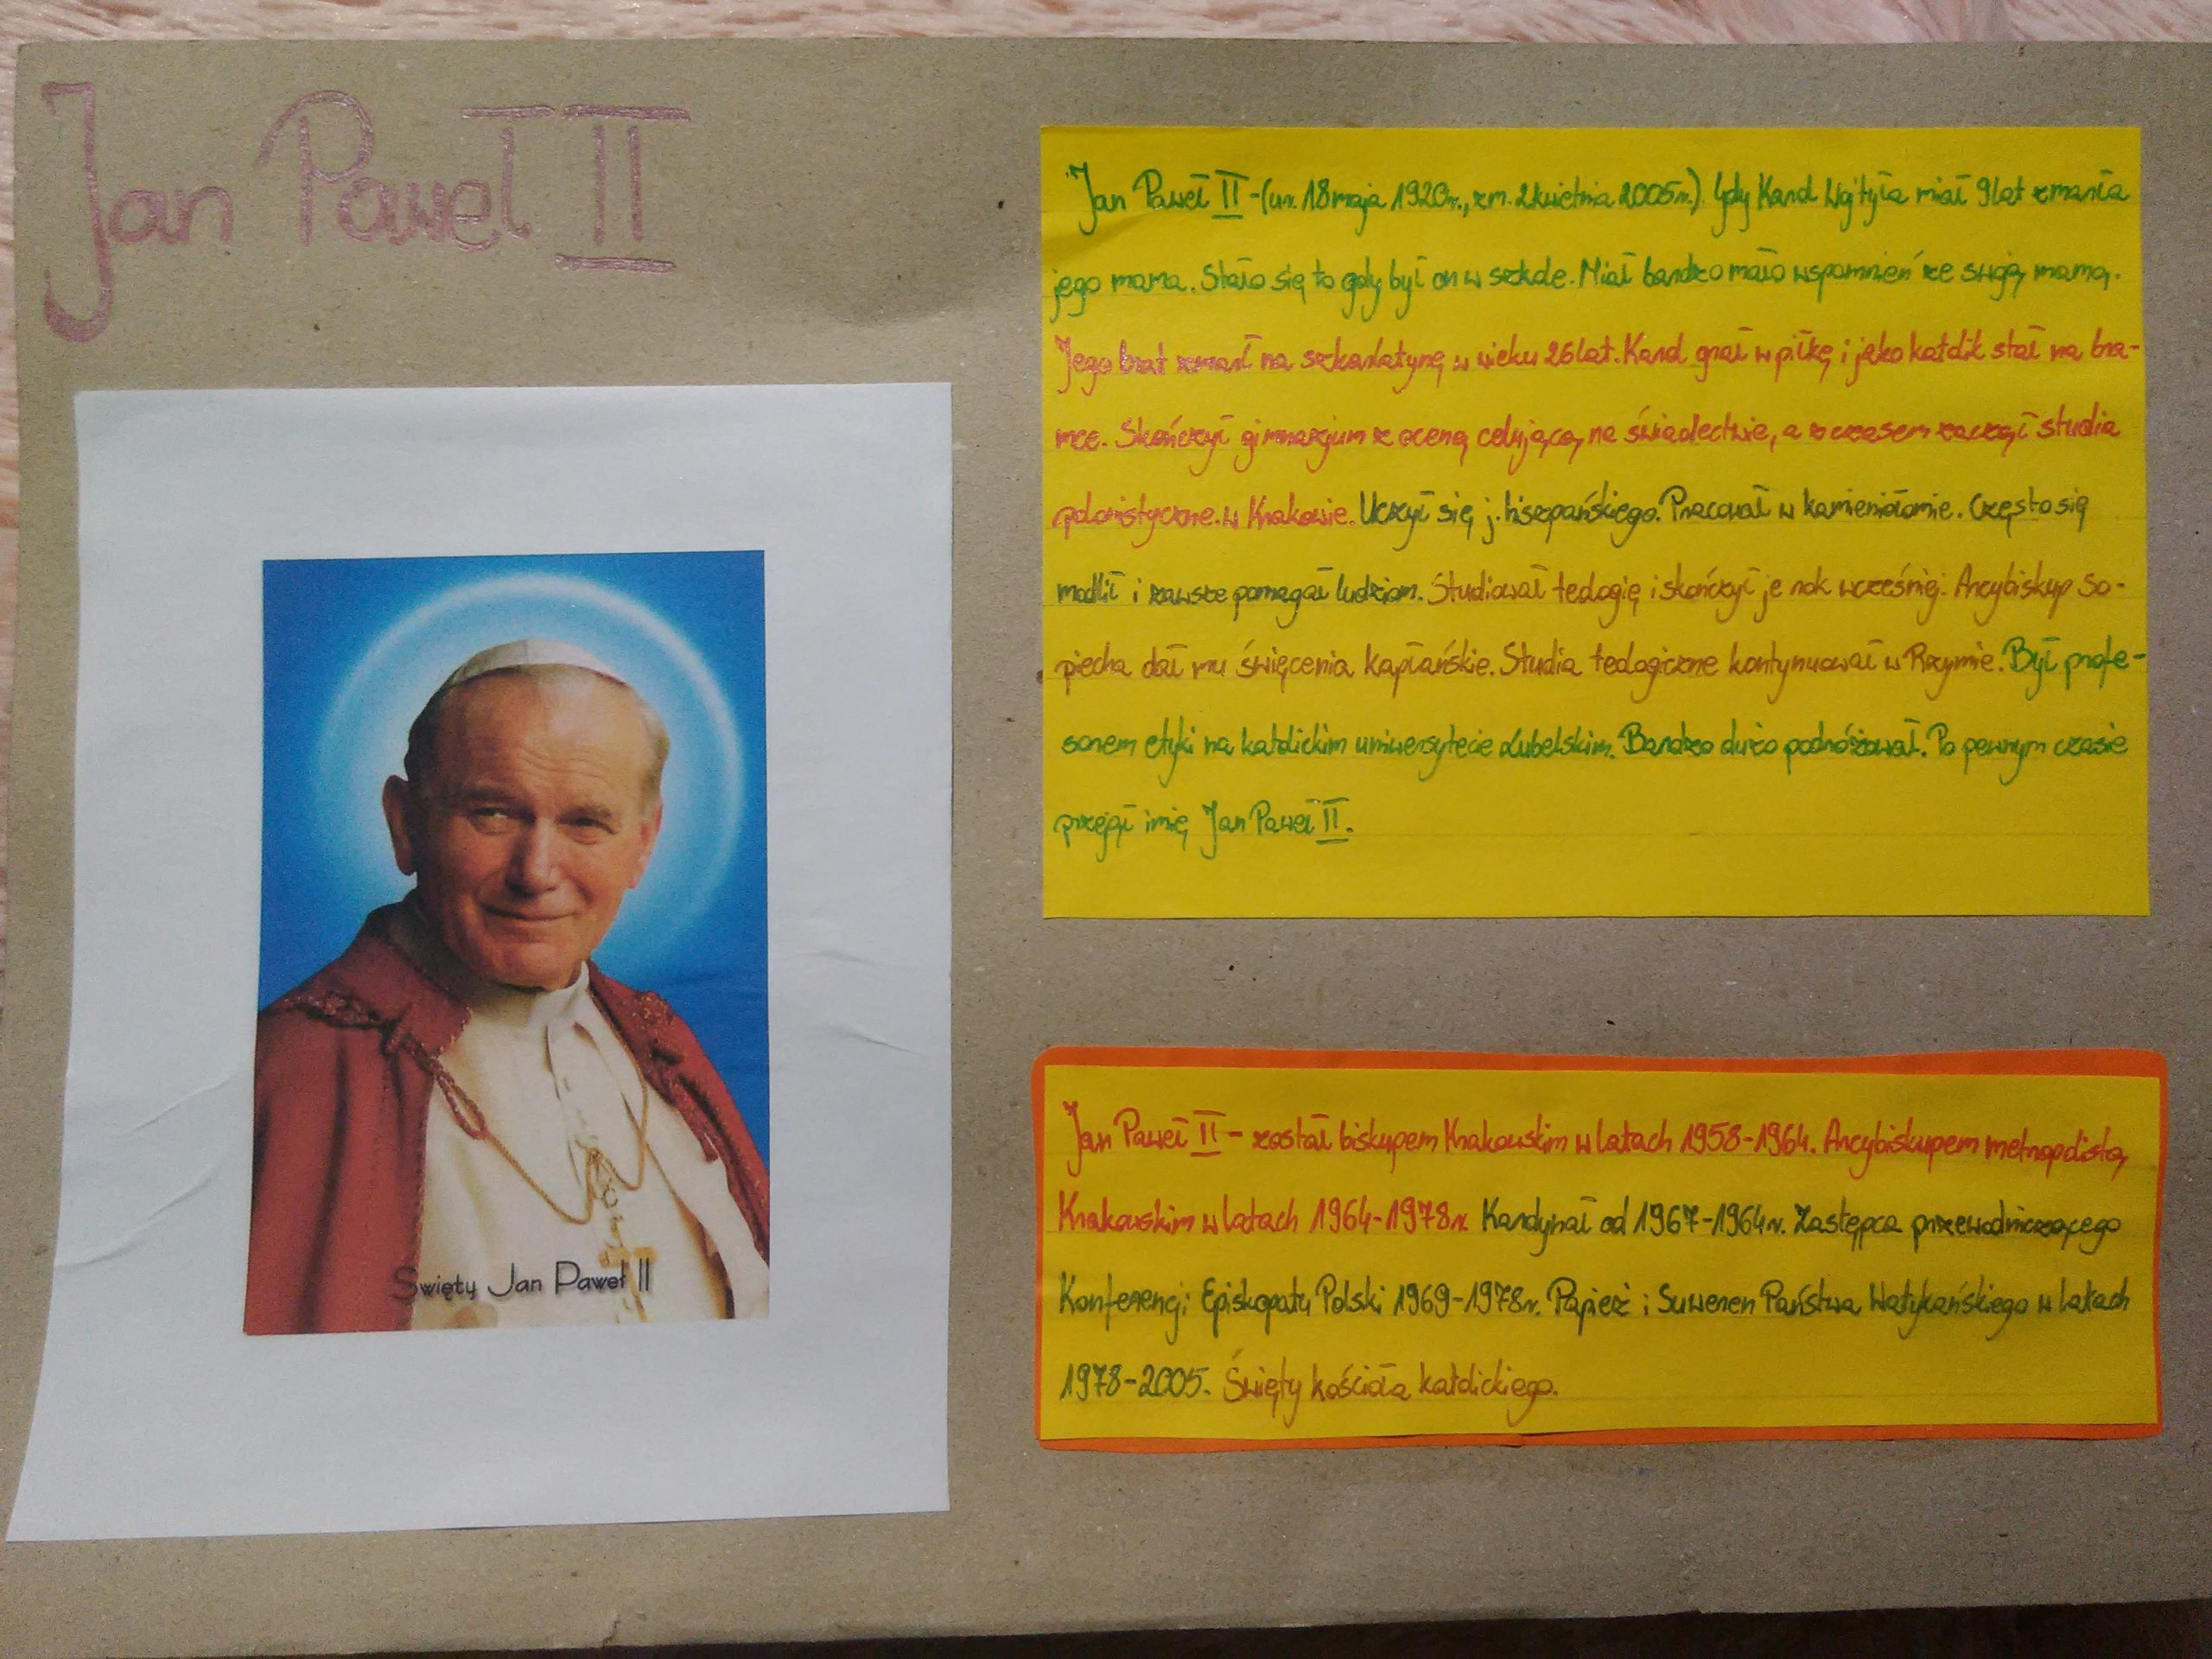 Jan Paweł II
Jan Paweł II - (ur. 18 maja 1920r., zm. 2 kwietnia 2005r.) Gdy Karol Wojtyła miał 9 lat zmarła
jego mama. Stało się to gdy był on w szkole. Miał bardzo mało wspomnień ze swoją mamą.
Jego brat zmarł na szkarlatynę w wieku 26 lat. Karol grał w piłkę i jako katolik stał na bra-
mce. Skończył gimnazjum z oceną celującą na świadectwie, a z czasem zaczął studia
polonistyczne w Krakowie. Uczył się j. hiszpańskiego. Pracował w kamieniołomie. Często się
modlił i zawsze pomagał ludziom. Studiował teologię i skończył je rok wcześniej. Arcybiskup Sa-
piecha dał mu święcenia kapłańskie. Studia teologiczne kontynuował w Rzymie. Był profe-
sorem etyki na katolickim uniwersytecie Lubelskim. Bardzo dużo podróżował. Po pewnym czasie
przejął imię Jan Paweł II.
Święty Jan Paweł II
Jan Paweł II - został biskupem Krakowskim w latach 1958-1964. Arcybiskupem metropolistą
Krakowskim w latach 1964-1978r. Kardynał od 1967-1964r. Zastępca przewodniczącego
Konferencji Episkopatu Polski 1969-1978r. Papież i Suweren Państwa Watykańskiego w latach
1978-2005. Święty kościoła katolickiego.